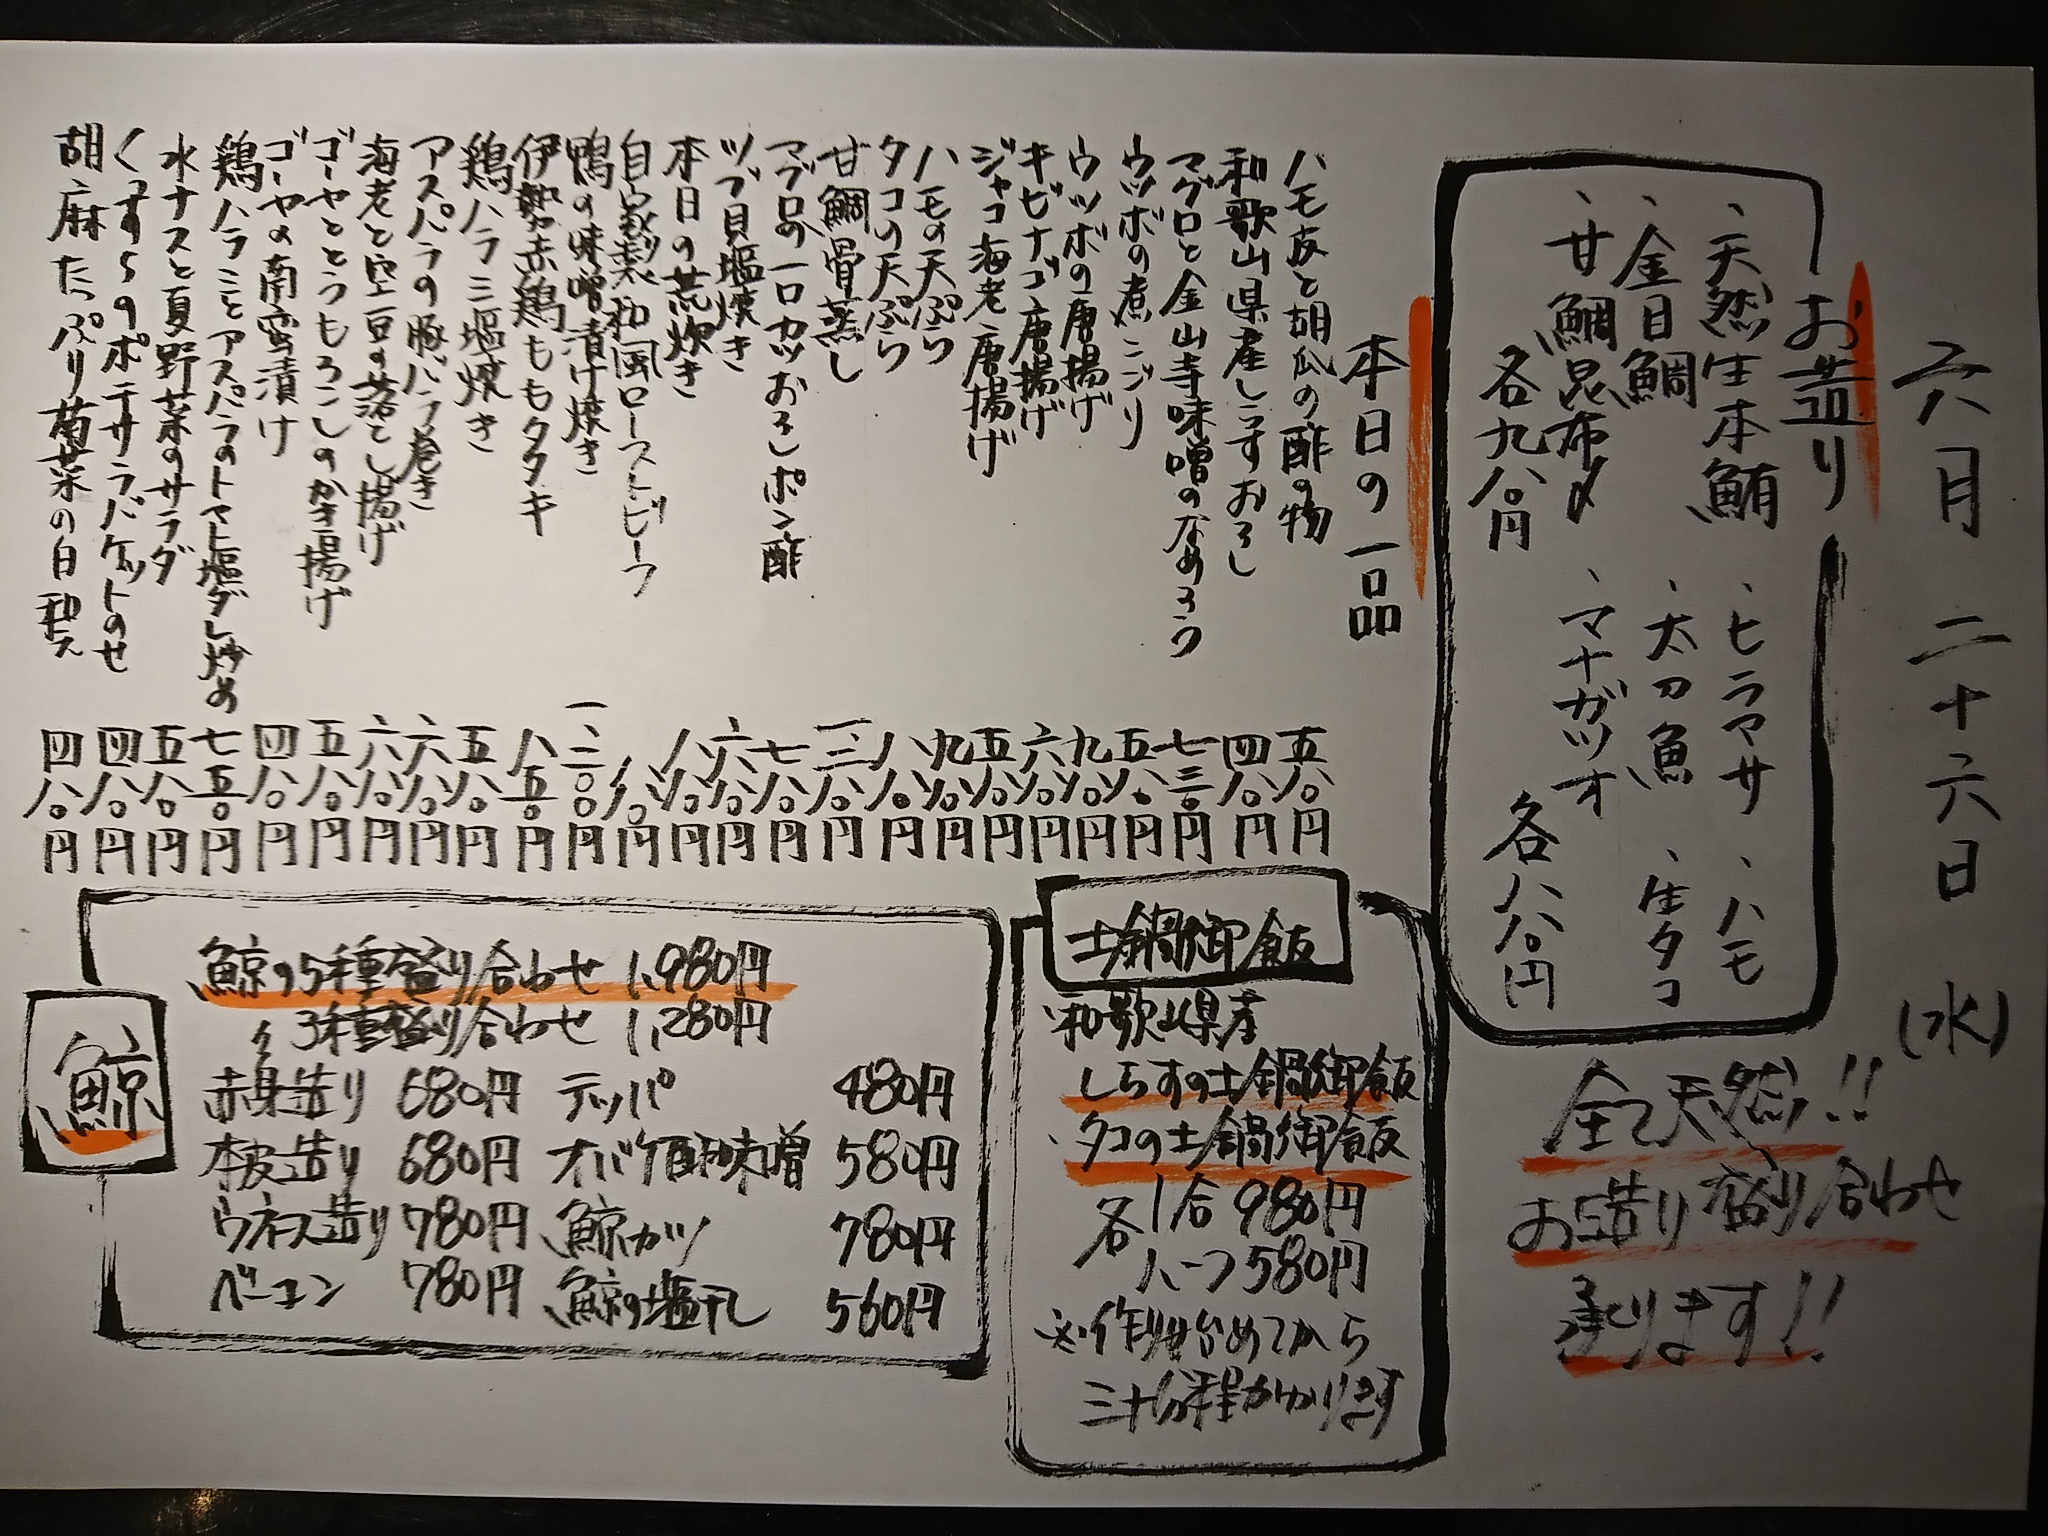 六月二十六日(水)
お造り
、天然生本鮪
、金目鯛
、甘鯛昆布〆
各九八〇円
、ヒラマサ
、ハモ
、太刀魚
、生タコ
、マナガツオ
各八八〇円
全て天然!!
お造り盛り合わせ
承ります!!
本日の一品
ハモ皮と胡瓜の酢の物 五八〇円
和歌山県産しらすおろし 四八〇円
マグロと金山寺味噌のなめろう 七三〇円
ウツボの煮こごり 五八〇円
ウツボの唐揚げ 九八〇円
キビナゴ唐揚げ 六八〇円
ジャコ海老唐揚げ 五八〇円
ハモの天ぷら 九八〇円
タコの天ぷら 八八〇円
甘鯛骨蒸し
マグロの一口カツおろしポン酢 七八〇円
ツブ貝塩焼き 六八〇円
本日の荒炊き 八八〇円
自家製和風ローストビーフ
鴨の味噌漬け焼き 一、二〇〇円
伊勢赤鶏ももタタキ 八五〇円
鶏ハラミ塩焼き 五八〇円
アスパラの豚バラ巻き 六八〇円
海老と空豆の落とし揚げ 六八〇円
ゴーヤととうもろこしのかき揚げ 五八〇円
ゴーヤの南蛮漬け 四八〇円
鶏ハラミとアスパラのトマト塩ダレ炒め 七五〇円
水ナスと夏野菜のサラダ 五八〇円
くずし5のポテサラバケットのせ 四八〇円
胡麻たっぷり菊菜の白和え 四八〇円
土鍋御飯
、和歌山県産
しらすの土鍋御飯
、タコの土鍋御飯
各1合980円
ハーフ580円
※作り始めてから
三十分程かかります
鯨
鯨の5種盛り合わせ 1,980円
〃 3種盛り合わせ 1,280円
赤身造り 680円 テッパ 480円
本皮造り 680円 オバケ酢味噌 580円
ウネス造り 780円 鯨カツ 780円
ベーコン 780円 鯨の塩干し 560円